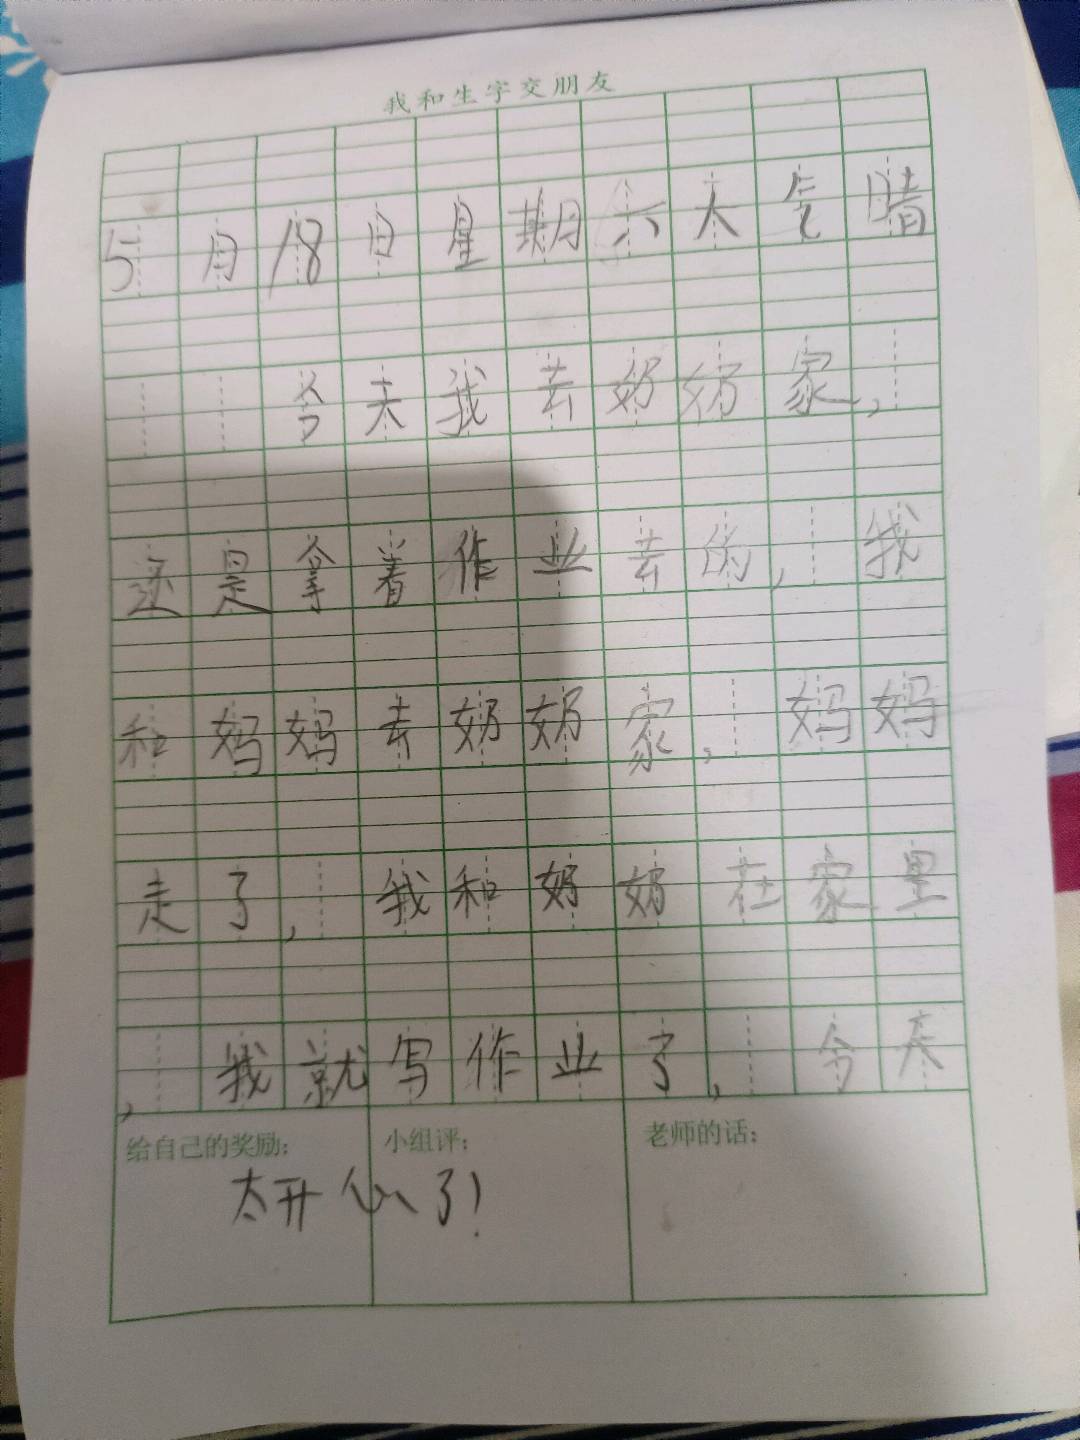 我和生字交朋友
5月18日星期六天气晴
今天我去奶奶家,
还是拿着作业去的,我
和妈妈去奶奶家,妈妈
走了,我和奶奶在家里
,我就写作业了,今天
给自己的奖励:
太开心了!
小组评:
老师的话: